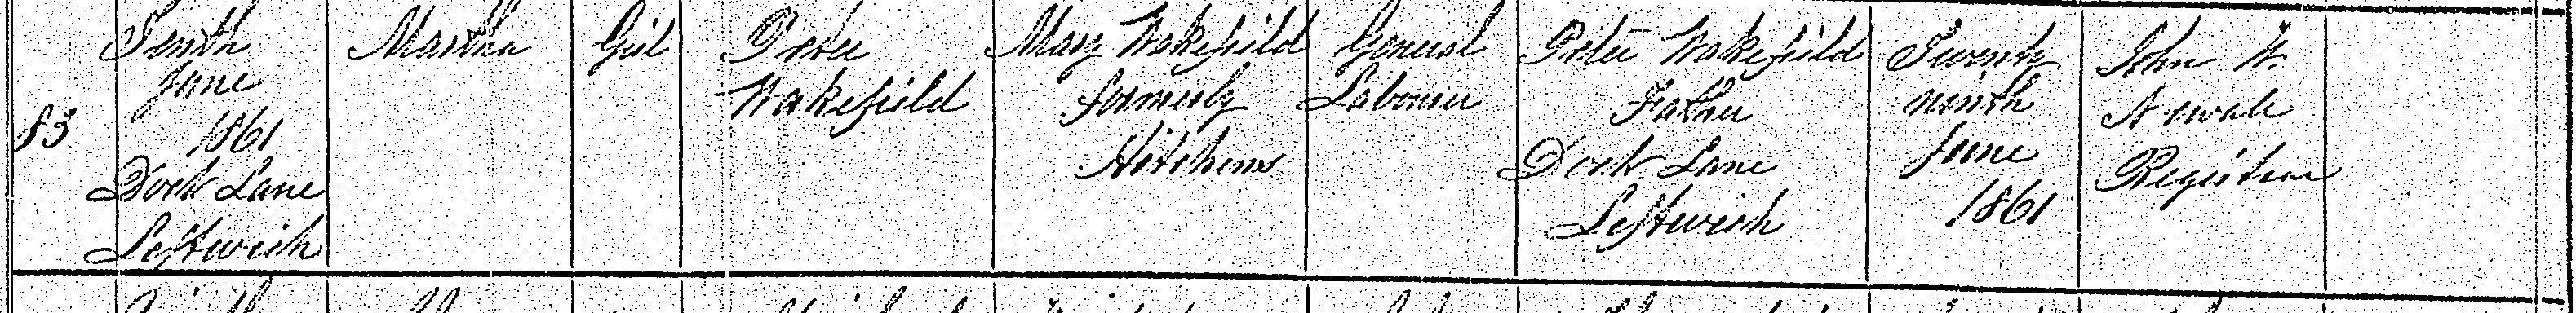 83
Tenth
June
1861
Dock Lane
Leftwich
Martha
Girl
Peter
Wakefield
Mary Wakefield
formerly
Hitchens
General
Labourer
Peter Wakefield
Father
Dock Lane
Leftwich
Twenty
ninth
June
1861
John W.
Registrar